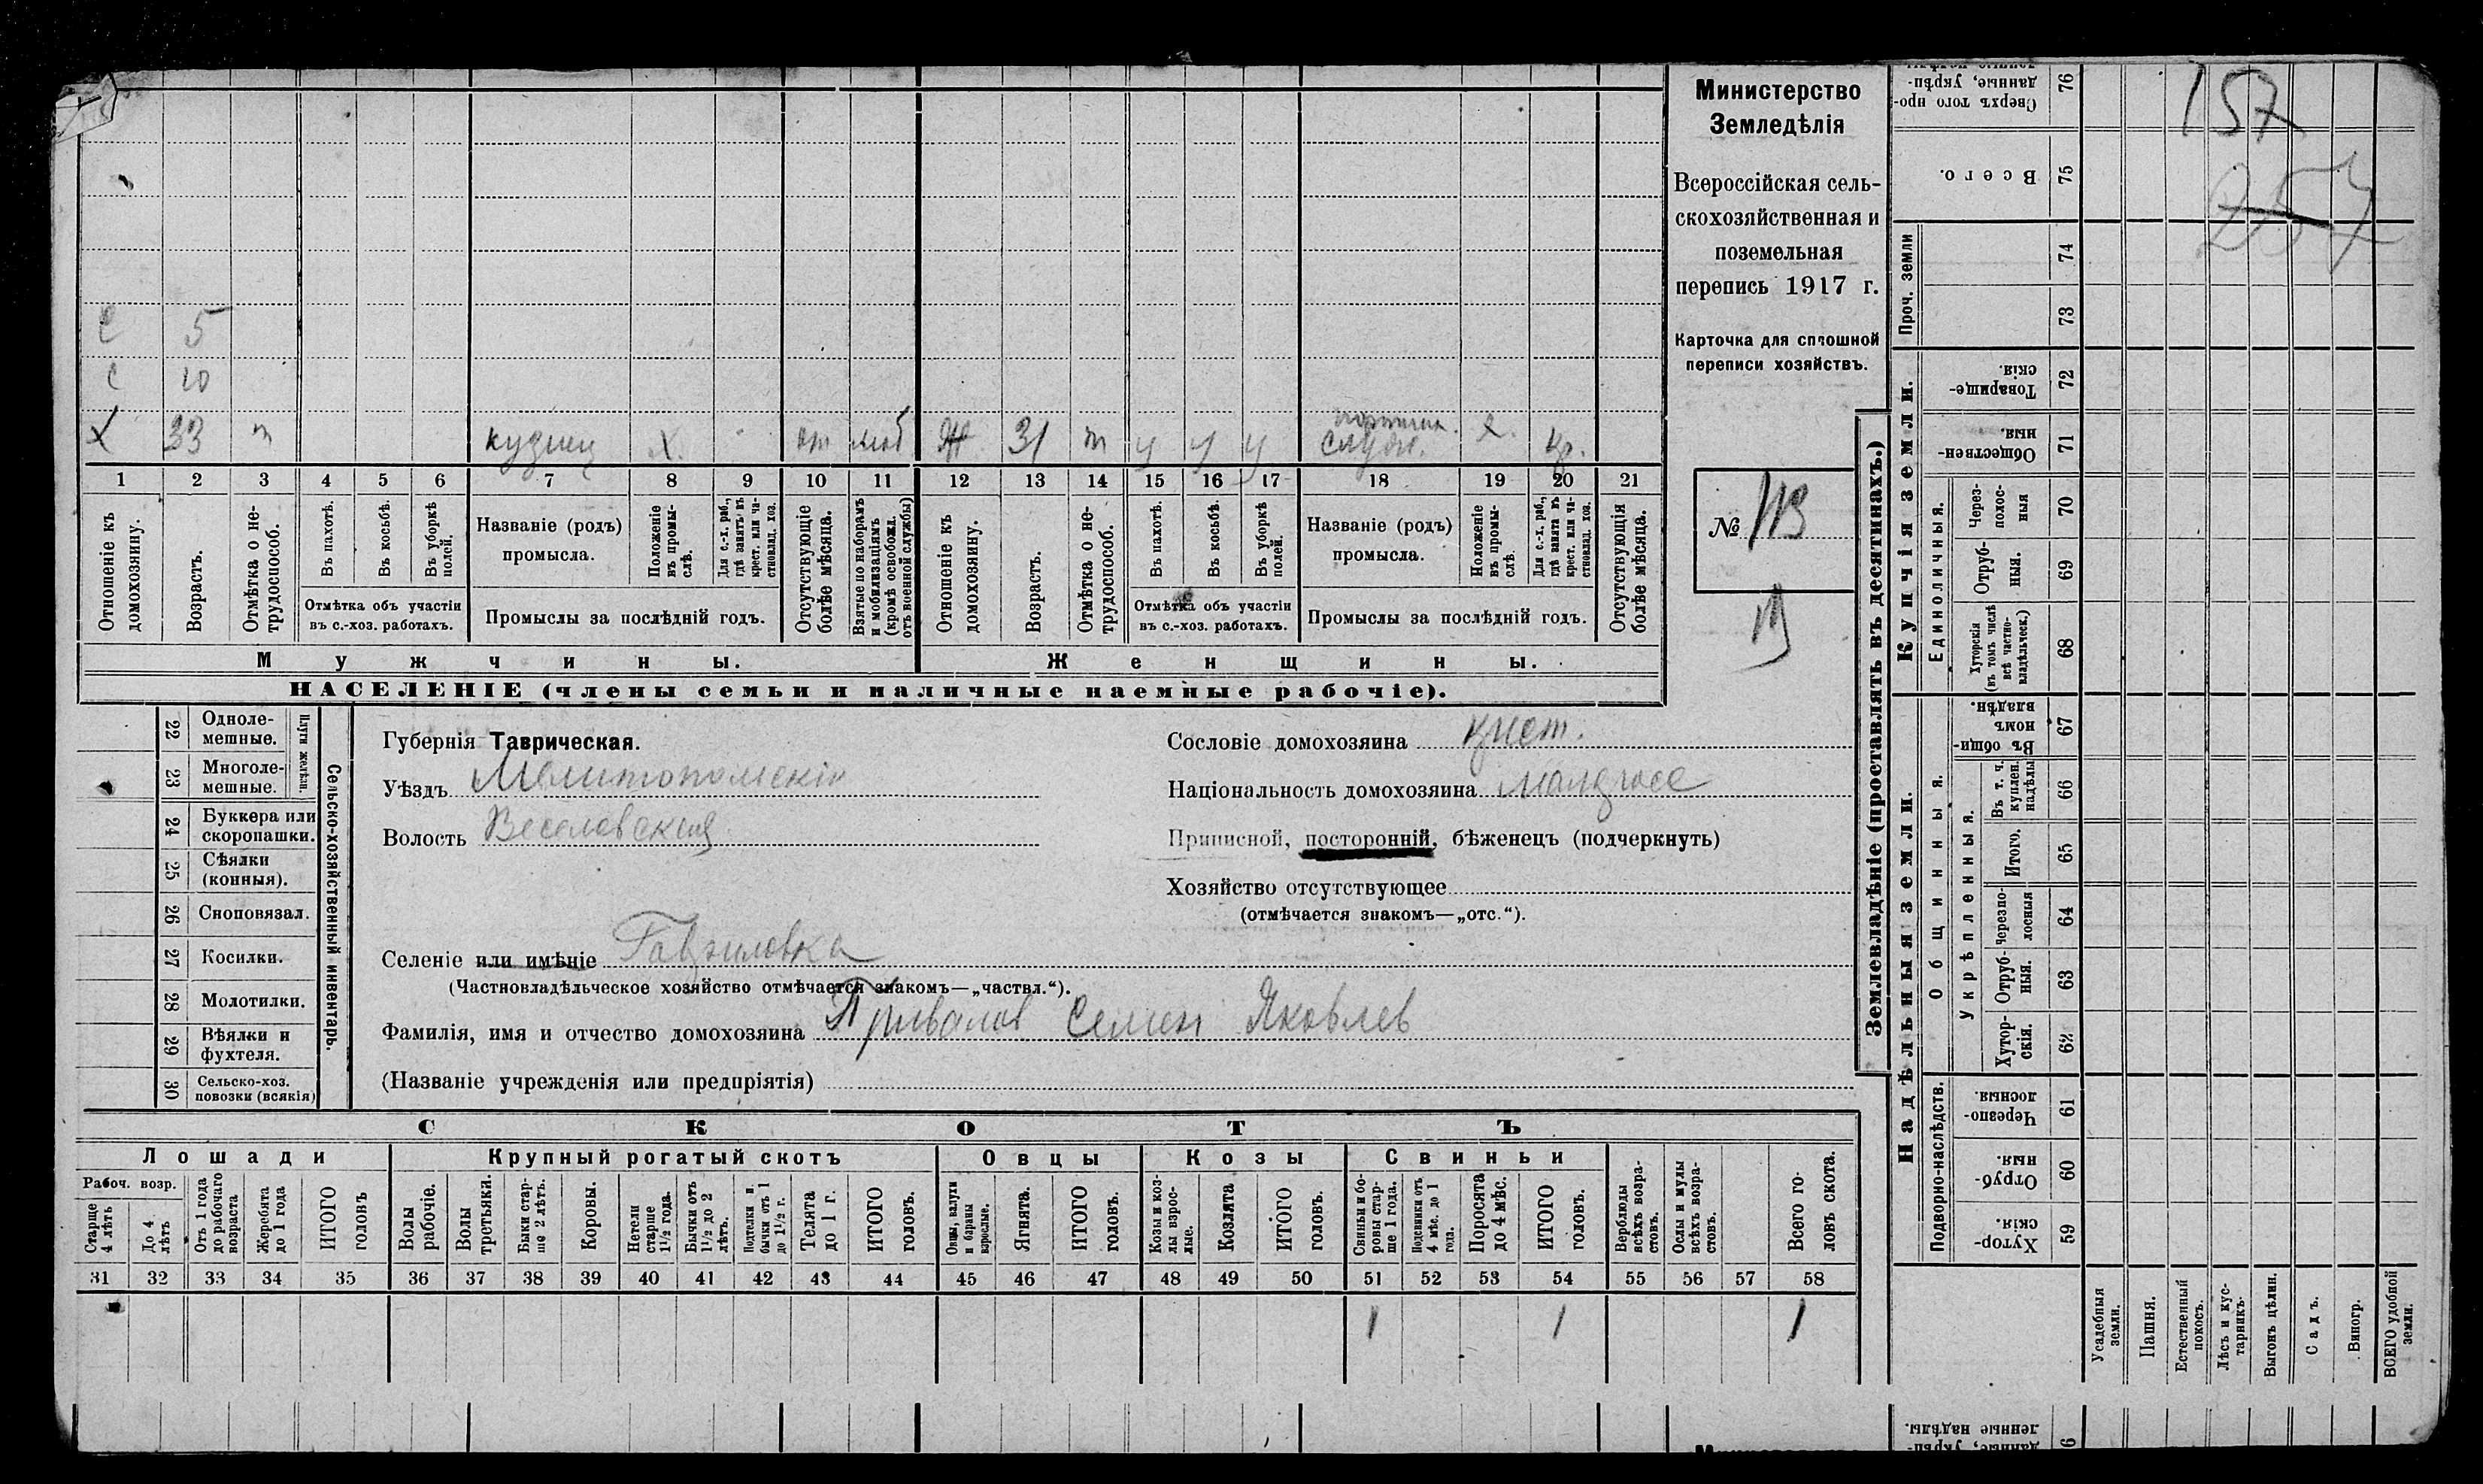 157
257
Министерство
Земледѣлія
Всероссійская сель-
скохозяйственная и
поземельная
перепись 1917 г.
Карточка для сплошной
переписи хозяйствъ.
№ 113
С 5
С 10
Х 33 т кузнец Х. от моб Ж 31 т у у у служ. Х. кр.
1 2 3 4 5 6 7 8 9 10 11 12 13 14 15 16 17 18 19 20 21
Отношеніе къ домохозяину.
Возрастъ.
Отмѣтка о не-трудоспособ.
Въ пахотѣ.
Въ косьбѣ.
Въ уборкѣ полей.
Отмѣтка объ участіи
въ с.-хоз. работахъ.
Названіе (родъ)
промысла.
Положеніе въ промы-слѣ.
Для с.-х. раб., гдѣ занятъ въ крест. или ча-стновлад. хоз.
Промыслы за послѣдній годъ.
Отсутствующіе болѣе мѣсяца.
Взятые по наборамъ и мобилизаціямъ (кромѣ освобожд. отъ военной службы)
Отношеніе къ домохозяину.
Возрастъ.
Отмѣтка о не-трудоспособ.
Въ пахотѣ.
Въ косьбѣ.
Въ уборкѣ полей.
Отмѣтка объ участіи
въ с.-хоз. работахъ.
Названіе (родъ)
промысла.
Положеніе въ промы-слѣ.
Для с.-х. раб., гдѣ занята въ крест. или ча-стновлад. хоз.
Промыслы за послѣдній годъ.
Отсутствующія болѣе мѣсяца.
Мужчины.
Женщины.
НАСЕЛЕНІЕ (члены семьи и наличные наемные рабочіе).
Сельско-хозяйственный инвентарь.
Плуги желѣзн.
22 Одноле-мешные.
23 Многоле-мешные.
24 Буккера или скоропашки.
25 Сѣялки (конныя).
26 Сноповязал.
27 Косилки.
28 Молотилки.
29 Вѣялки и фухтеля.
30 Сельско-хоз. повозки (всякія)
Губернія Таврическая.
Уѣздъ Мелитопольскій
Волость Веселовская
Селеніе или имѣніе Гавриловка
(Частновладѣльческое хозяйство отмѣчается знакомъ—„частвл.“).
Фамилія, имя и отчество домохозяина Привалов Семен Яковлев
(Названіе учрежденія или предпріятія)
Сословіе домохозяина крест.
Національность домохозяина малоросс
Приписной, посторонній, бѣженецъ (подчеркнуть)
Хозяйство отсутствующее
(отмѣчается знакомъ—„отс.“).
СКОТЪ
Лошади
Крупный рогатый скотъ
Овцы
Козы
Свиньи
Рабоч. возр.
Старше 4 лѣтъ
До 4 лѣтъ
Отъ 1 года до рабочаго возраста
Жеребята до 1 года
ИТОГО головъ
Волы рабочіе.
Волы третьяки.
Быки стар-ше 2 лѣтъ.
Коровы.
Нетели старше 1½ года.
Бычки отъ 1½ до 2 лѣтъ.
Подтелки и бычки отъ 1 до 1½ г.
Телята до 1 г.
ИТОГО головъ.
Овцы, валухи и бараны взрослые.
Ягнята.
ИТОГО головъ.
Козы и коз-лы взрос-лые.
Козлята
ИТОГО головъ.
Свиньи и бо-ровы стар-ше 1 года.
Подсвинки отъ 4 мѣс. до 1 года.
Поросята до 4 мѣс.
ИТОГО головъ.
Верблюды всѣхъ возра-стовъ.
Ослы и мулы всѣхъ возра-стовъ.
Всего го-ловъ скота.
31 32 33 34 35 36 37 38 39 40 41 42 43 44 45 46 47 48 49 50 51 52 53 54 55 56 57 58
1 1 1
Землевладѣніе (проставлять въ десятинахъ.)
Надѣльныя земли.
Купчія земли.
Проч. земли
Подворно-наслѣдств.
Общинныя.
Укрѣпленныя.
Единоличныя.
76 Сверхъ того про-данные, укрѣп-
75 Всего.
74
73
72 Товарище-скія.
71 Обществен-ныя.
70 Через-полос-ныя
69 Отруб-ныя.
68 Хуторскія (въ томъ числѣ всѣ частно-владѣльческ.)
67 Въ общин-номъ владѣн.
66 Въ т. ч. куплен. надѣлы
65 Итого.
64 Черезпо-лосныя
63 Отруб-ныя.
62 Хутор-скія.
61 Черезпо-лосныя.
60 Отруб-ныя.
59 Хутор-скія.
Усадебныя земли.
Пашня.
Естественный покосъ.
Лѣсъ и кус-тарникъ.
Выгонъ цѣлин.
Садъ.
Виногр.
ВСЕГО удобной земли.
данные, укрѣп-
ленные надѣлы.